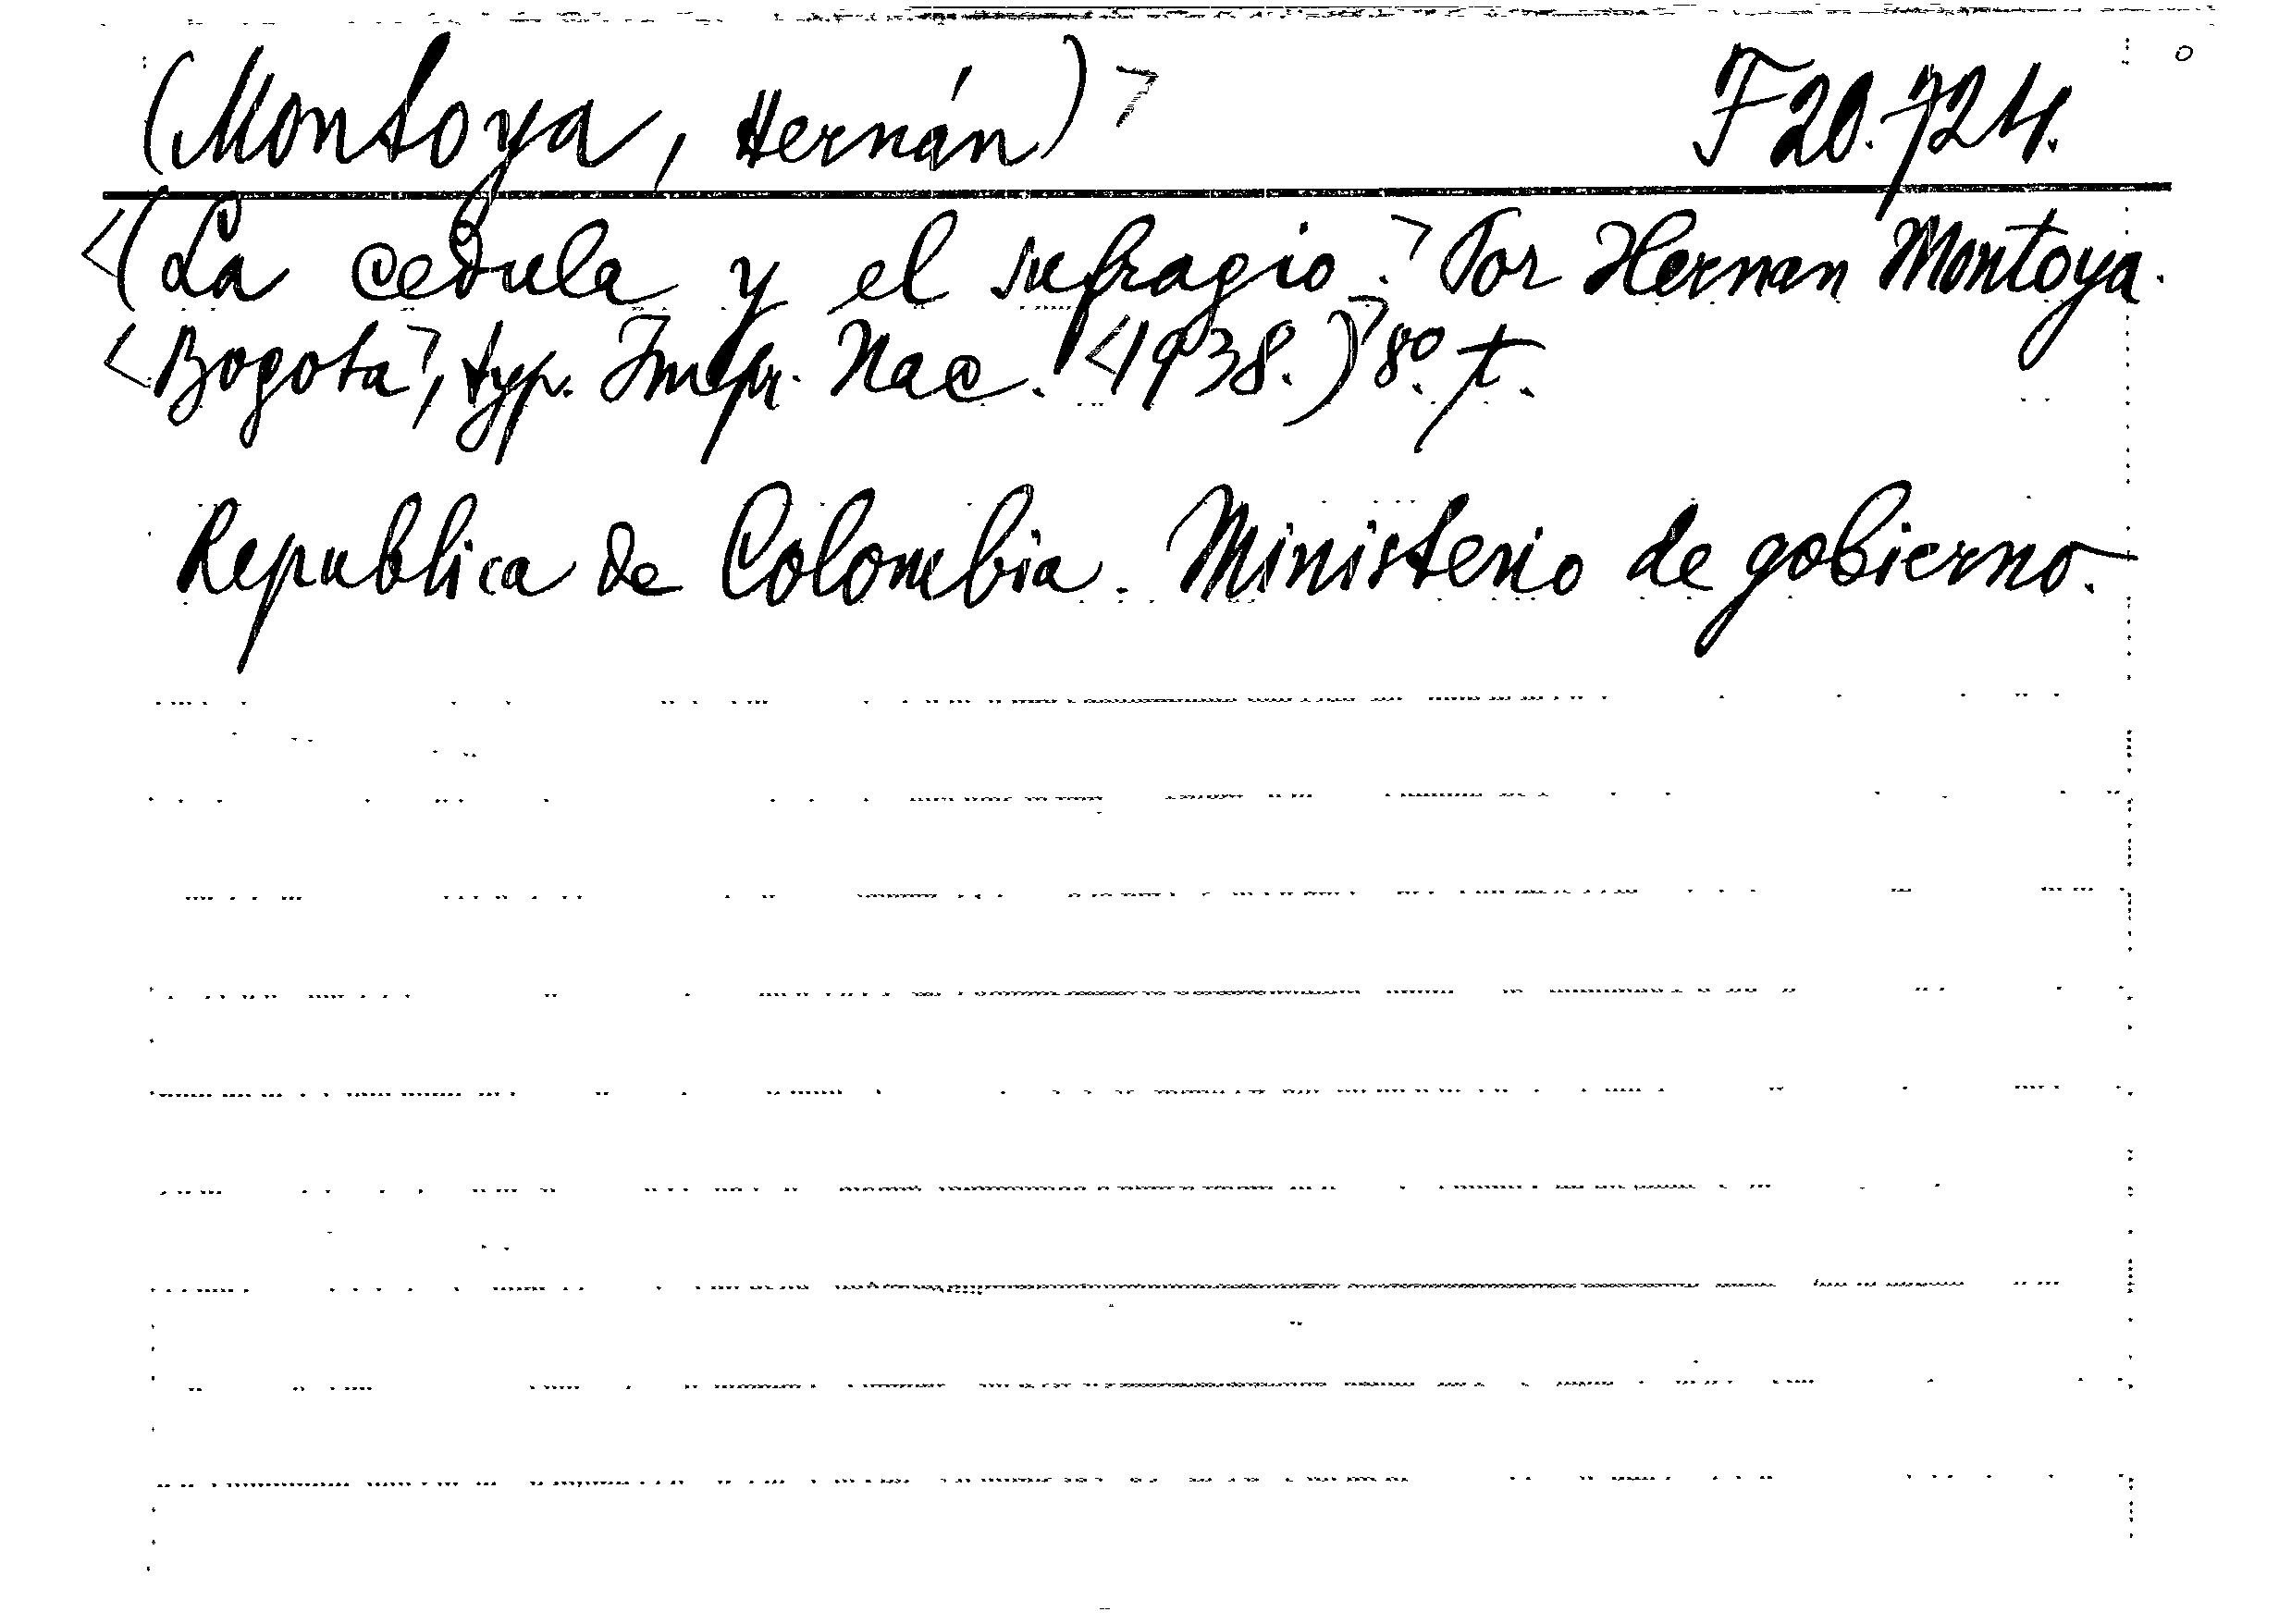 (Montoya, Hernán)> F 20.724.
<(La cedula y el sufragio.> Por Hernan Montoya.
<Bogota>, typ. Impr. Nac. <1938.)> 8º. t.
Republica de Colombia. Ministerio de gobierno.